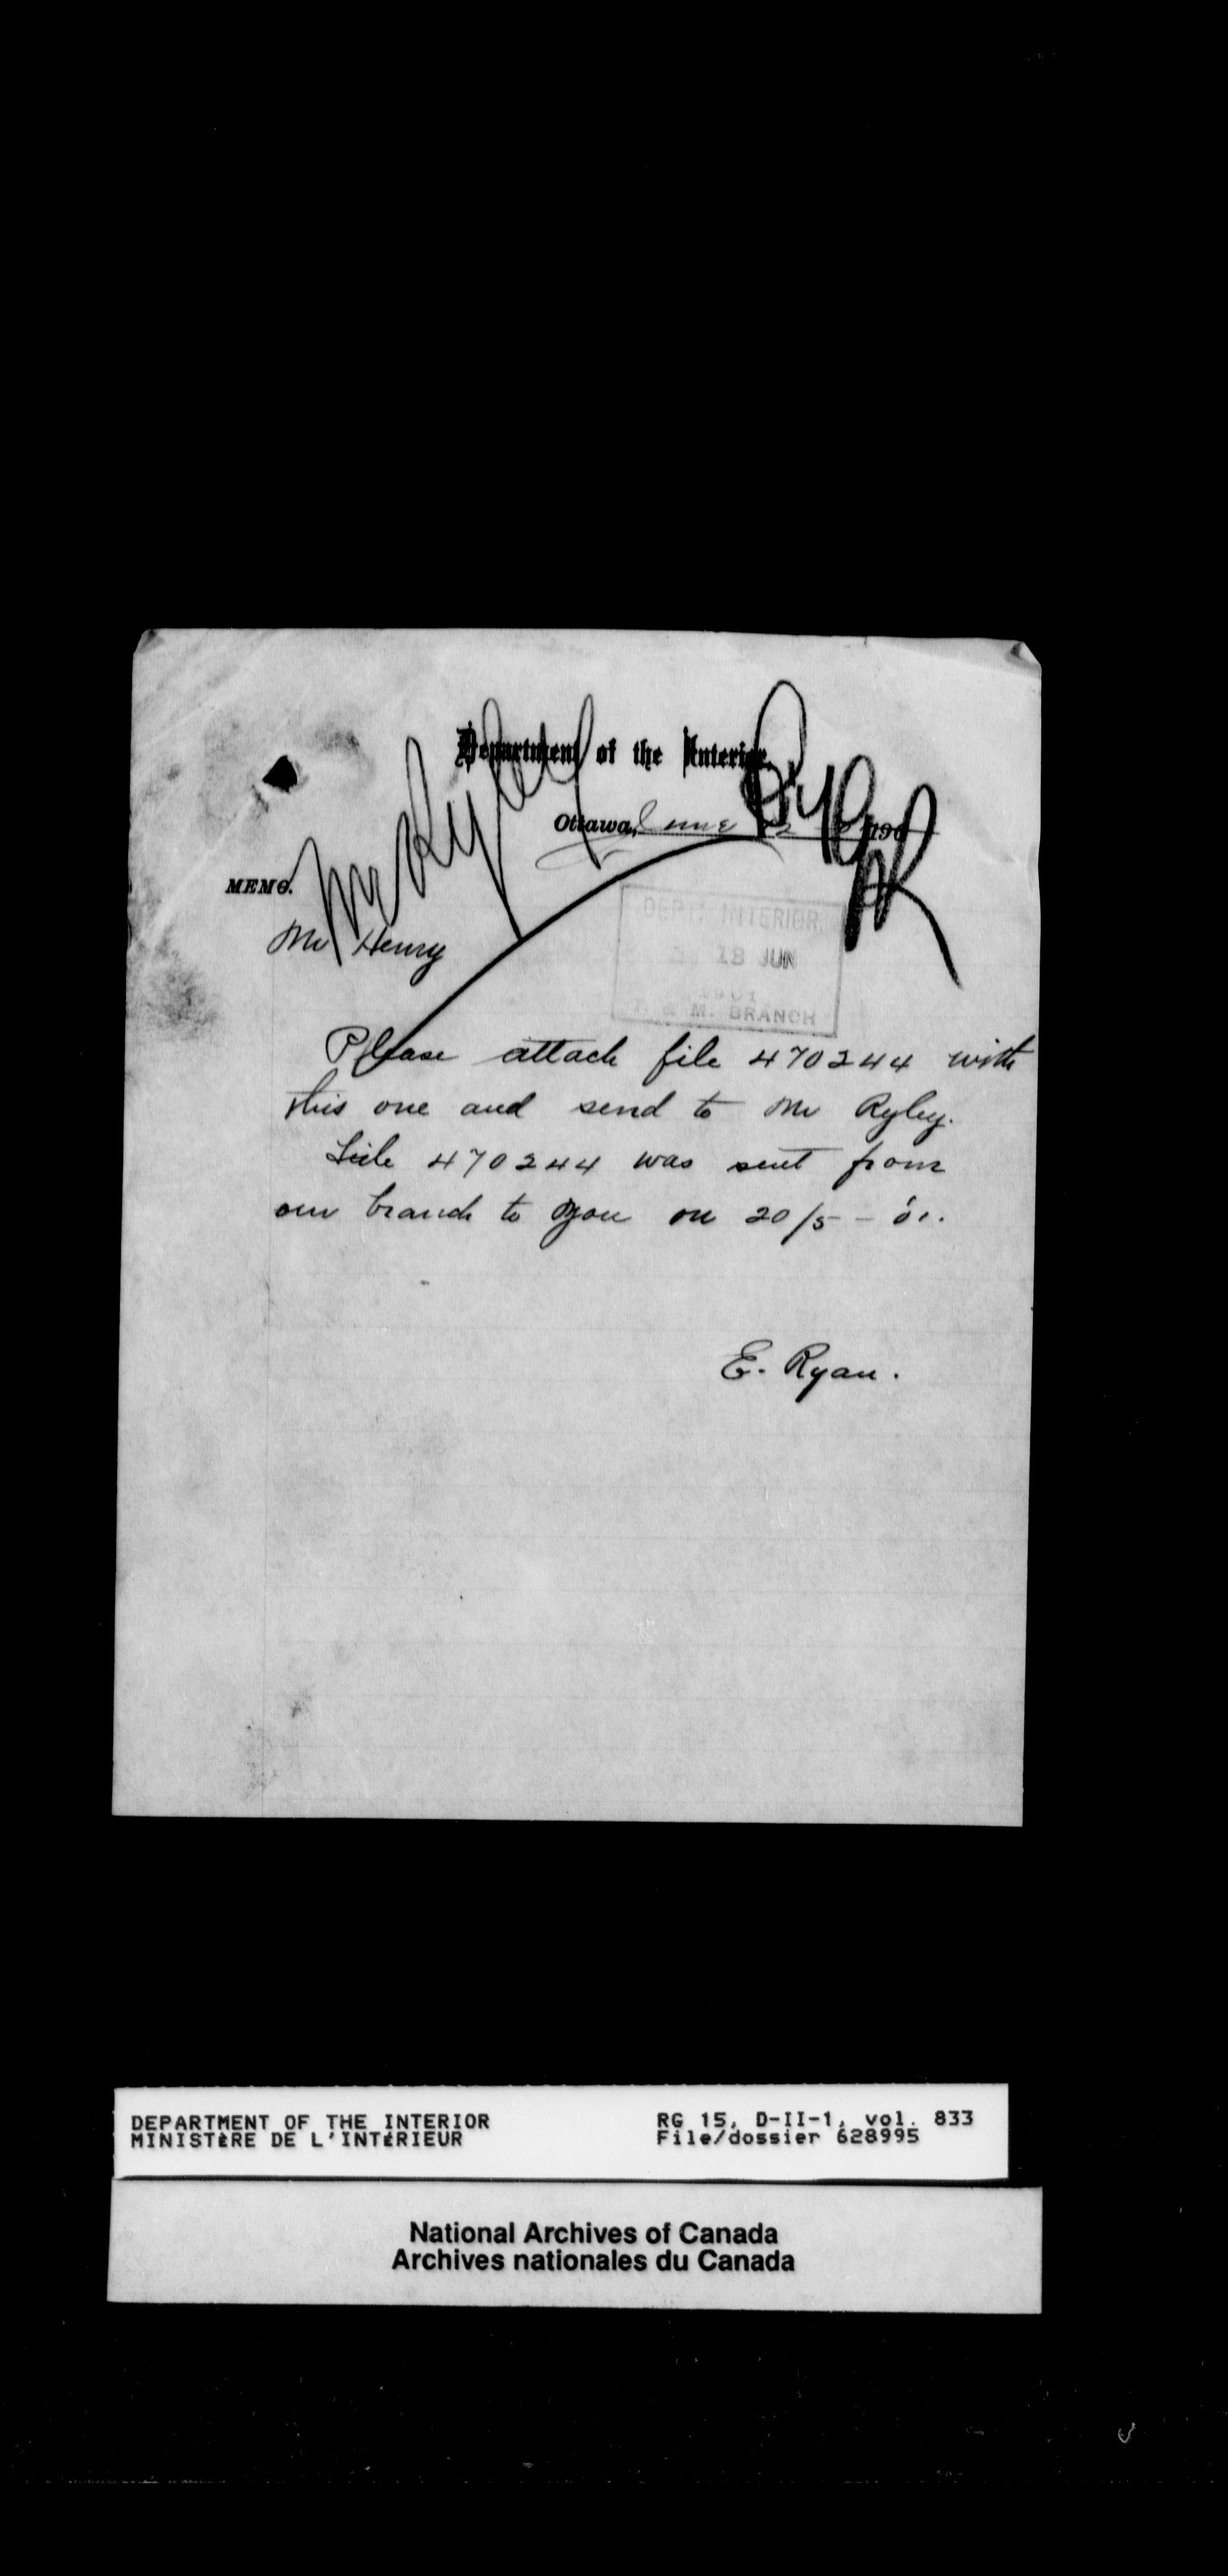 Department of the Interior.
Ottawa, June 190
MEMO.
Mr Ryley
Mr Henry
DEPT. INTERIOR
18 JUN
1901
T. & M. BRANCH
Please attach file 470244 with
this one and send to Mr Ryley.
File 470244 was sent from
our branch to you on 20/5 - 01.
E. Ryan.
DEPARTMENT OF THE INTERIOR
MINISTÈRE DE L'INTÉRIEUR
RG 15, D-II-1, vol. 833
File/dossier 628995
National Archives of Canada
Archives nationales du Canada